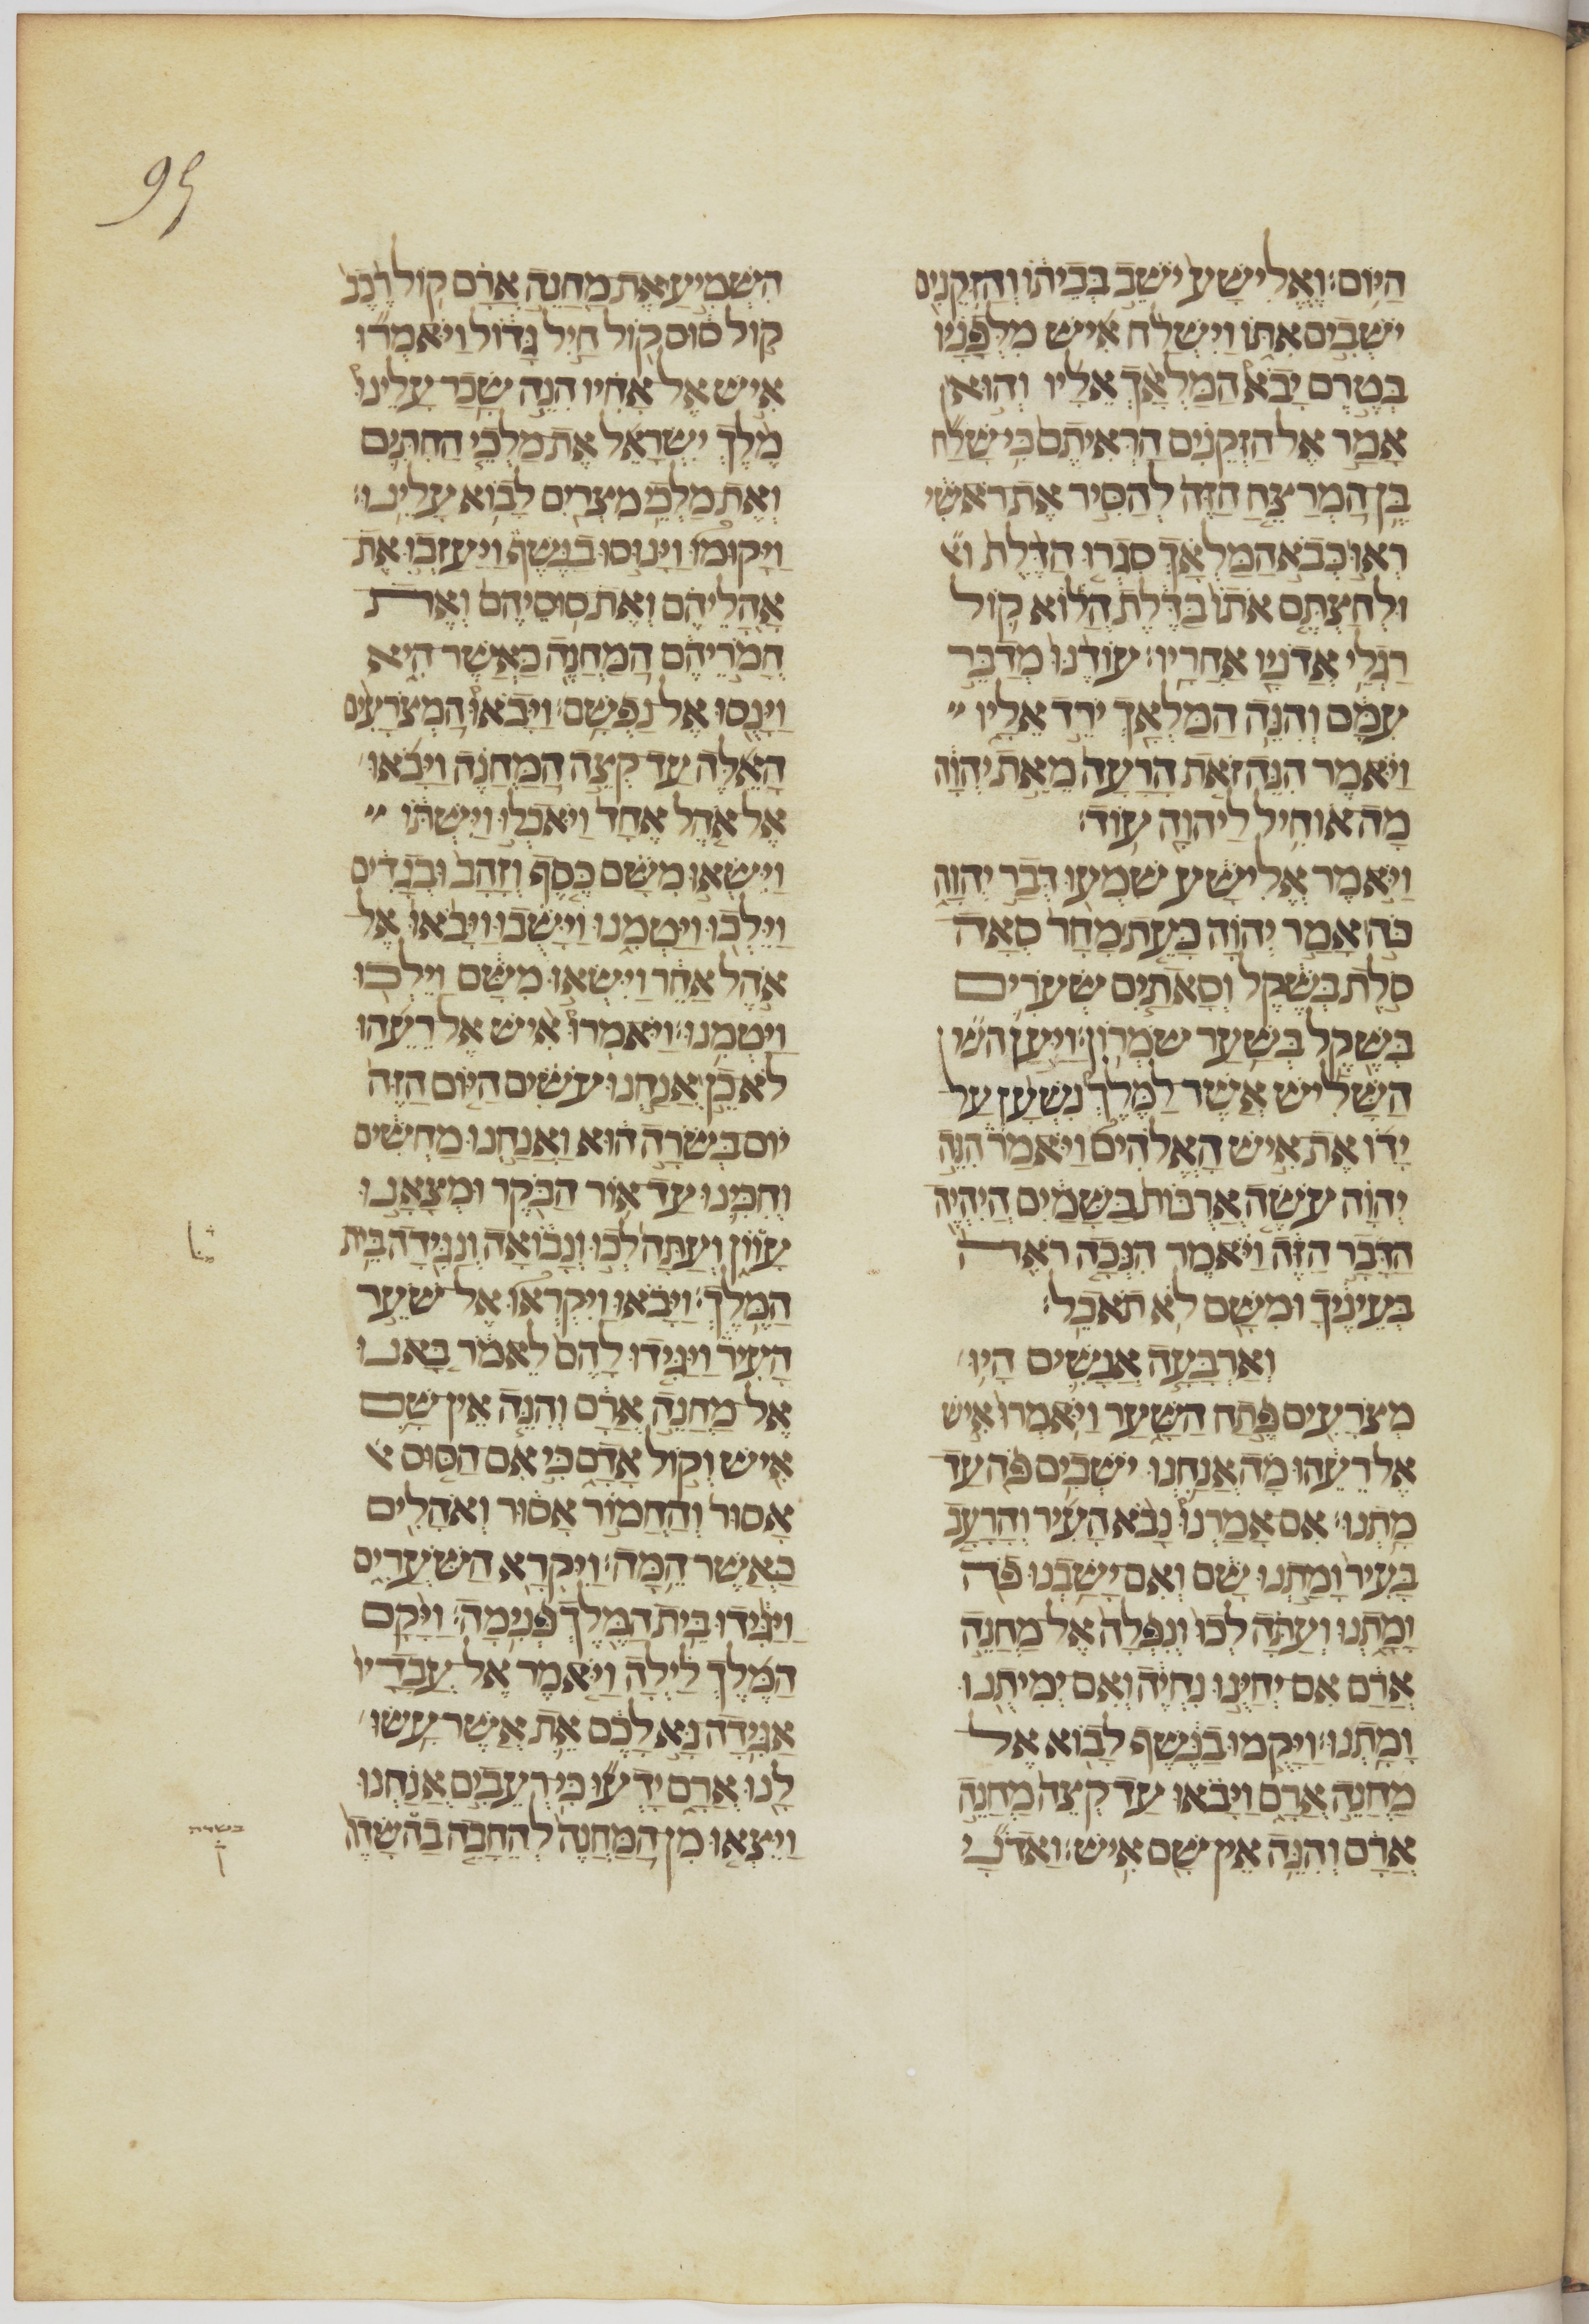 95
היום׃ ואלישע ישב בביתו והזקנים
ישבים אתו וישלח איש מלפניו
בטרם יבא המלאך אליו והוא
אמר אל הזקנים הראיתם כי שלח
בן המרצח הזה להסיר את ראשי
ראו כבא המלאך סגרו הדלת
ולחצתם אתו בדלת הלוא קול
רגלי אדניו אחריו׃ עודנו מדבר
עמם והנה המלאך ירד אליו
ויאמר הנה זאת הרעה מאת יהוה
מה אוחיל ליהוה עוד׃
ויאמר אלישע שמעו דבר יהוה
כה אמר יהוה כעת מחר סאה
סלת בשקל וסאתים שערים
בשקל בשער שמרון׃ ויען
השליש אשר למלך נשען על
ידו את איש האלהים ויאמר הנה
יהוה עשה ארבות בשמים היהיה
הדבר הזה ויאמר הנכה ראה
בעיניך ומשם לא תאכל׃
וארבעה אנשים היו
מצרעים פתח השער ויאמרו איש
אל רעהו מה אנחנו ישבים פה עד
מתנו׃ אם אמרנו נבא העיר והרעב
בעיר ומתנו שם ואם ישבנו פה
ומתנו ועתה לכו ונפלה אל מחנה
ארם אם יחינו נחיה ואם ימיתנו
ומתנו׃ ויקמו בנשף לבוא אל
מחנה ארם ויבאו עד קצה מחנה
ארם והנה אין שם איש׃ ואדני
השמיע את מחנה ארם קול רכב
קול סוס קול חיל גדול ויאמרו
איש אל אחיו הנה שכר עלינו
מלך ישראל את מלכי החתים
ואת מלכי מצרים לבוא עלינו׃
ויקומו וינוסו בנשף ויעזבו את
אהליהם ואת סוסיהם ואת
חמריהם המחנה כאשר היא
וינסו אל נפשם׃ ויבאו המצרעים
האלה עד קצה המחנה ויבאו
אל אהל אחד ויאכלו וישתו
וישאו משם כסף וזהב ובגדים
וילכו ויטמנו וישבו ויבאו אל
אהל אחר וישאו משם וילכו
ויטמנו׃ ויאמרו איש אל רעהו
לא כן אנחנו עשים היום הזה
יום בשרה הוא ואנחנו מחשים
וחכינו עד אור הבקר ומצאנו
עוון ועתה לכו ונבואה ונגידה בית
המלך׃ ויבאו ויקראו אל שער
העיר ויגידו להם לאמר באנו
אל מחנה ארם והנה אין שם
איש וקול אדם כי אם הסוס
אסור והחמור אסור ואהלים
כאשר המה׃ ויקרא השערים
ויגידו בית המלך פנימה׃ ויקם
המלך לילה ויאמר אל עבדיו
אגידה נא לכם את אשר עשו
לנו ארם ידעו כי רעבים אנחנו
ויצאו מן המחנה להחבה בהשדה
בשדה
ק